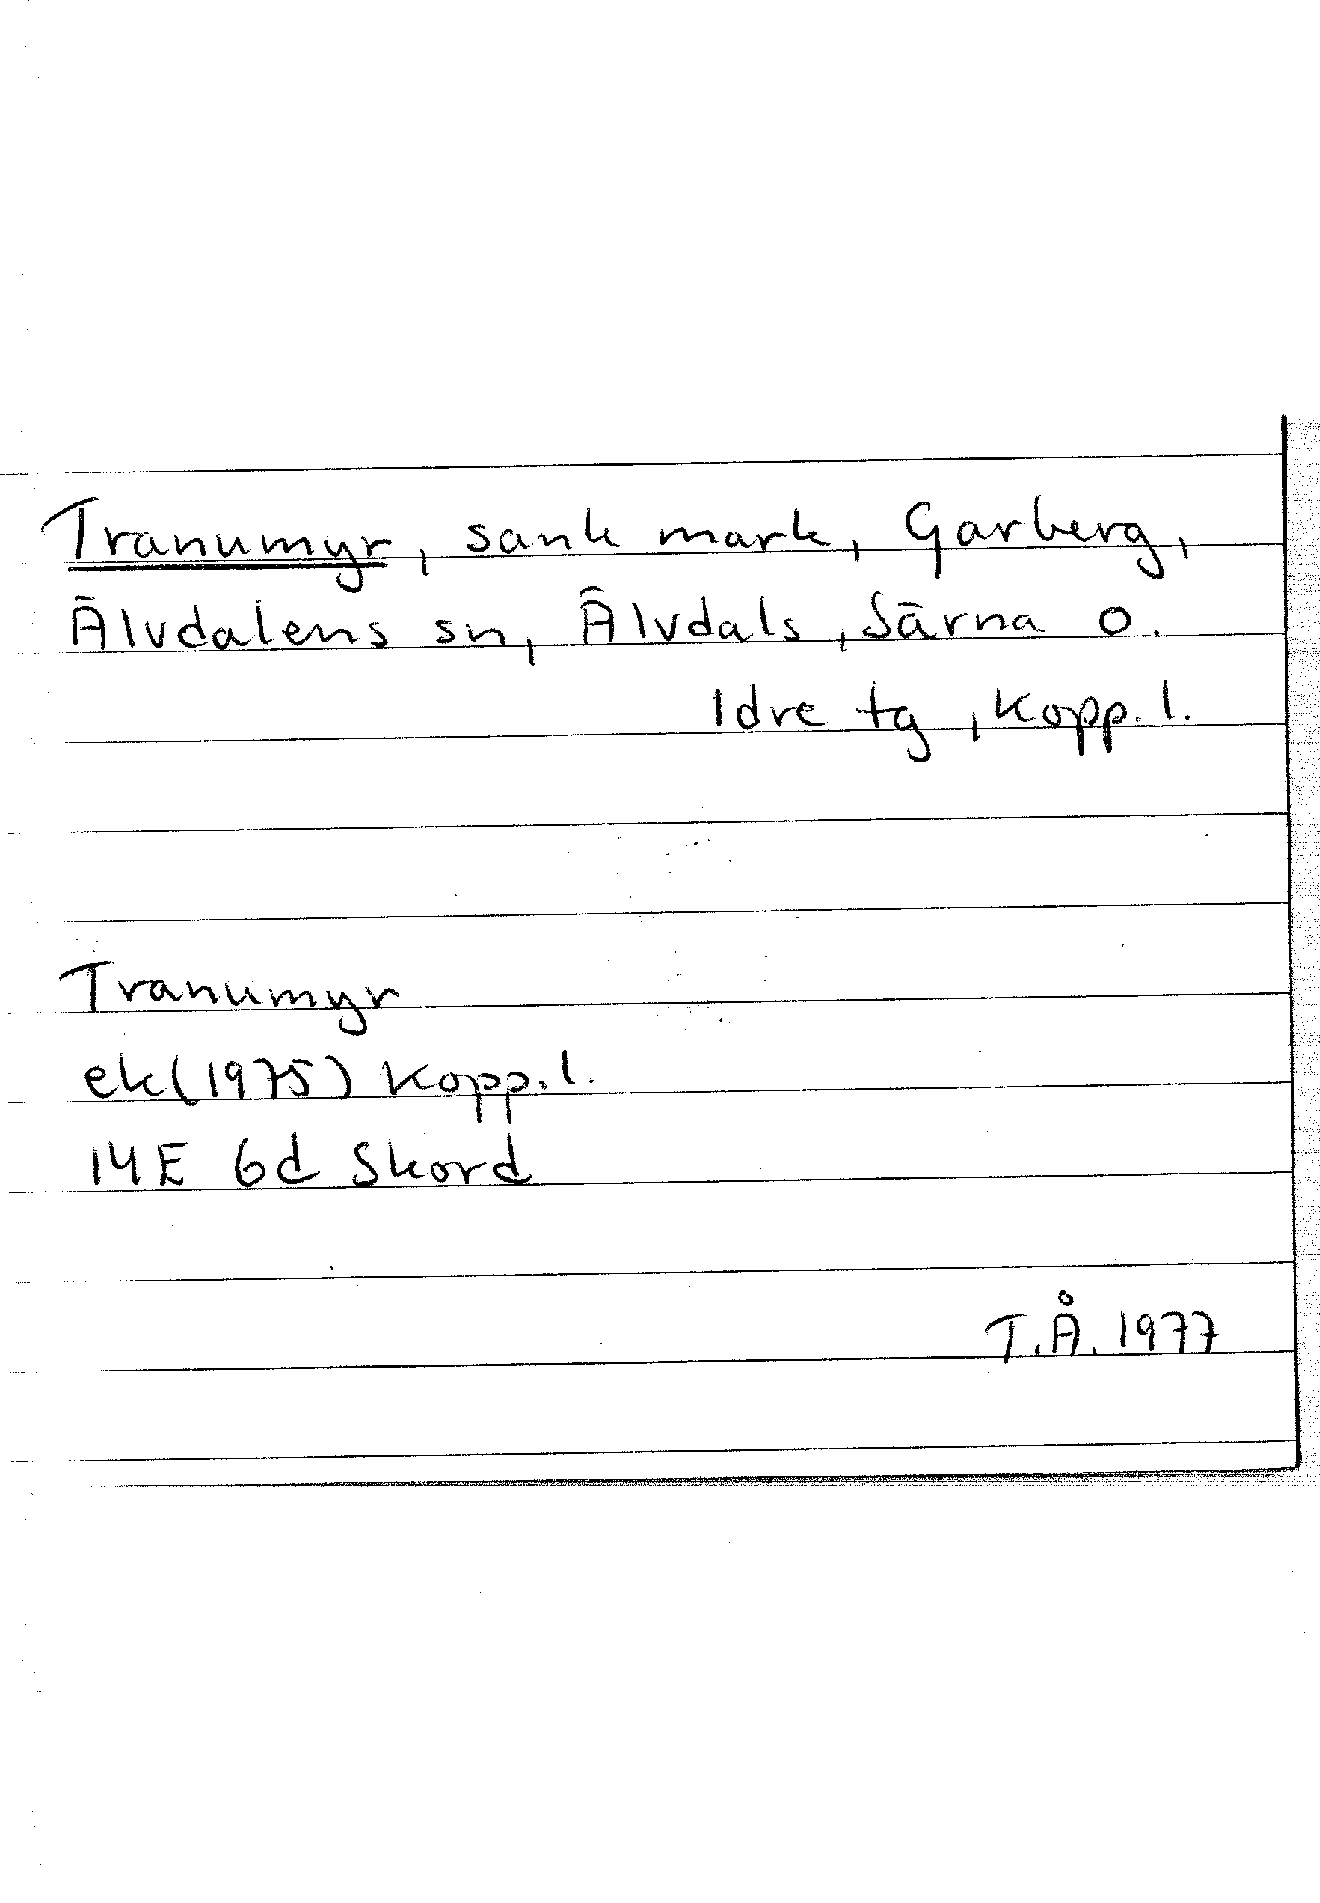 Tranumyr, sank mark, Garberg,
Älvdalens sn, Älvdals, Särna o.
Idre tg, Kopp. l.
Tranumyr
ek (1975) Kopp. l.
14E 6d Skord
T.Å. 1977